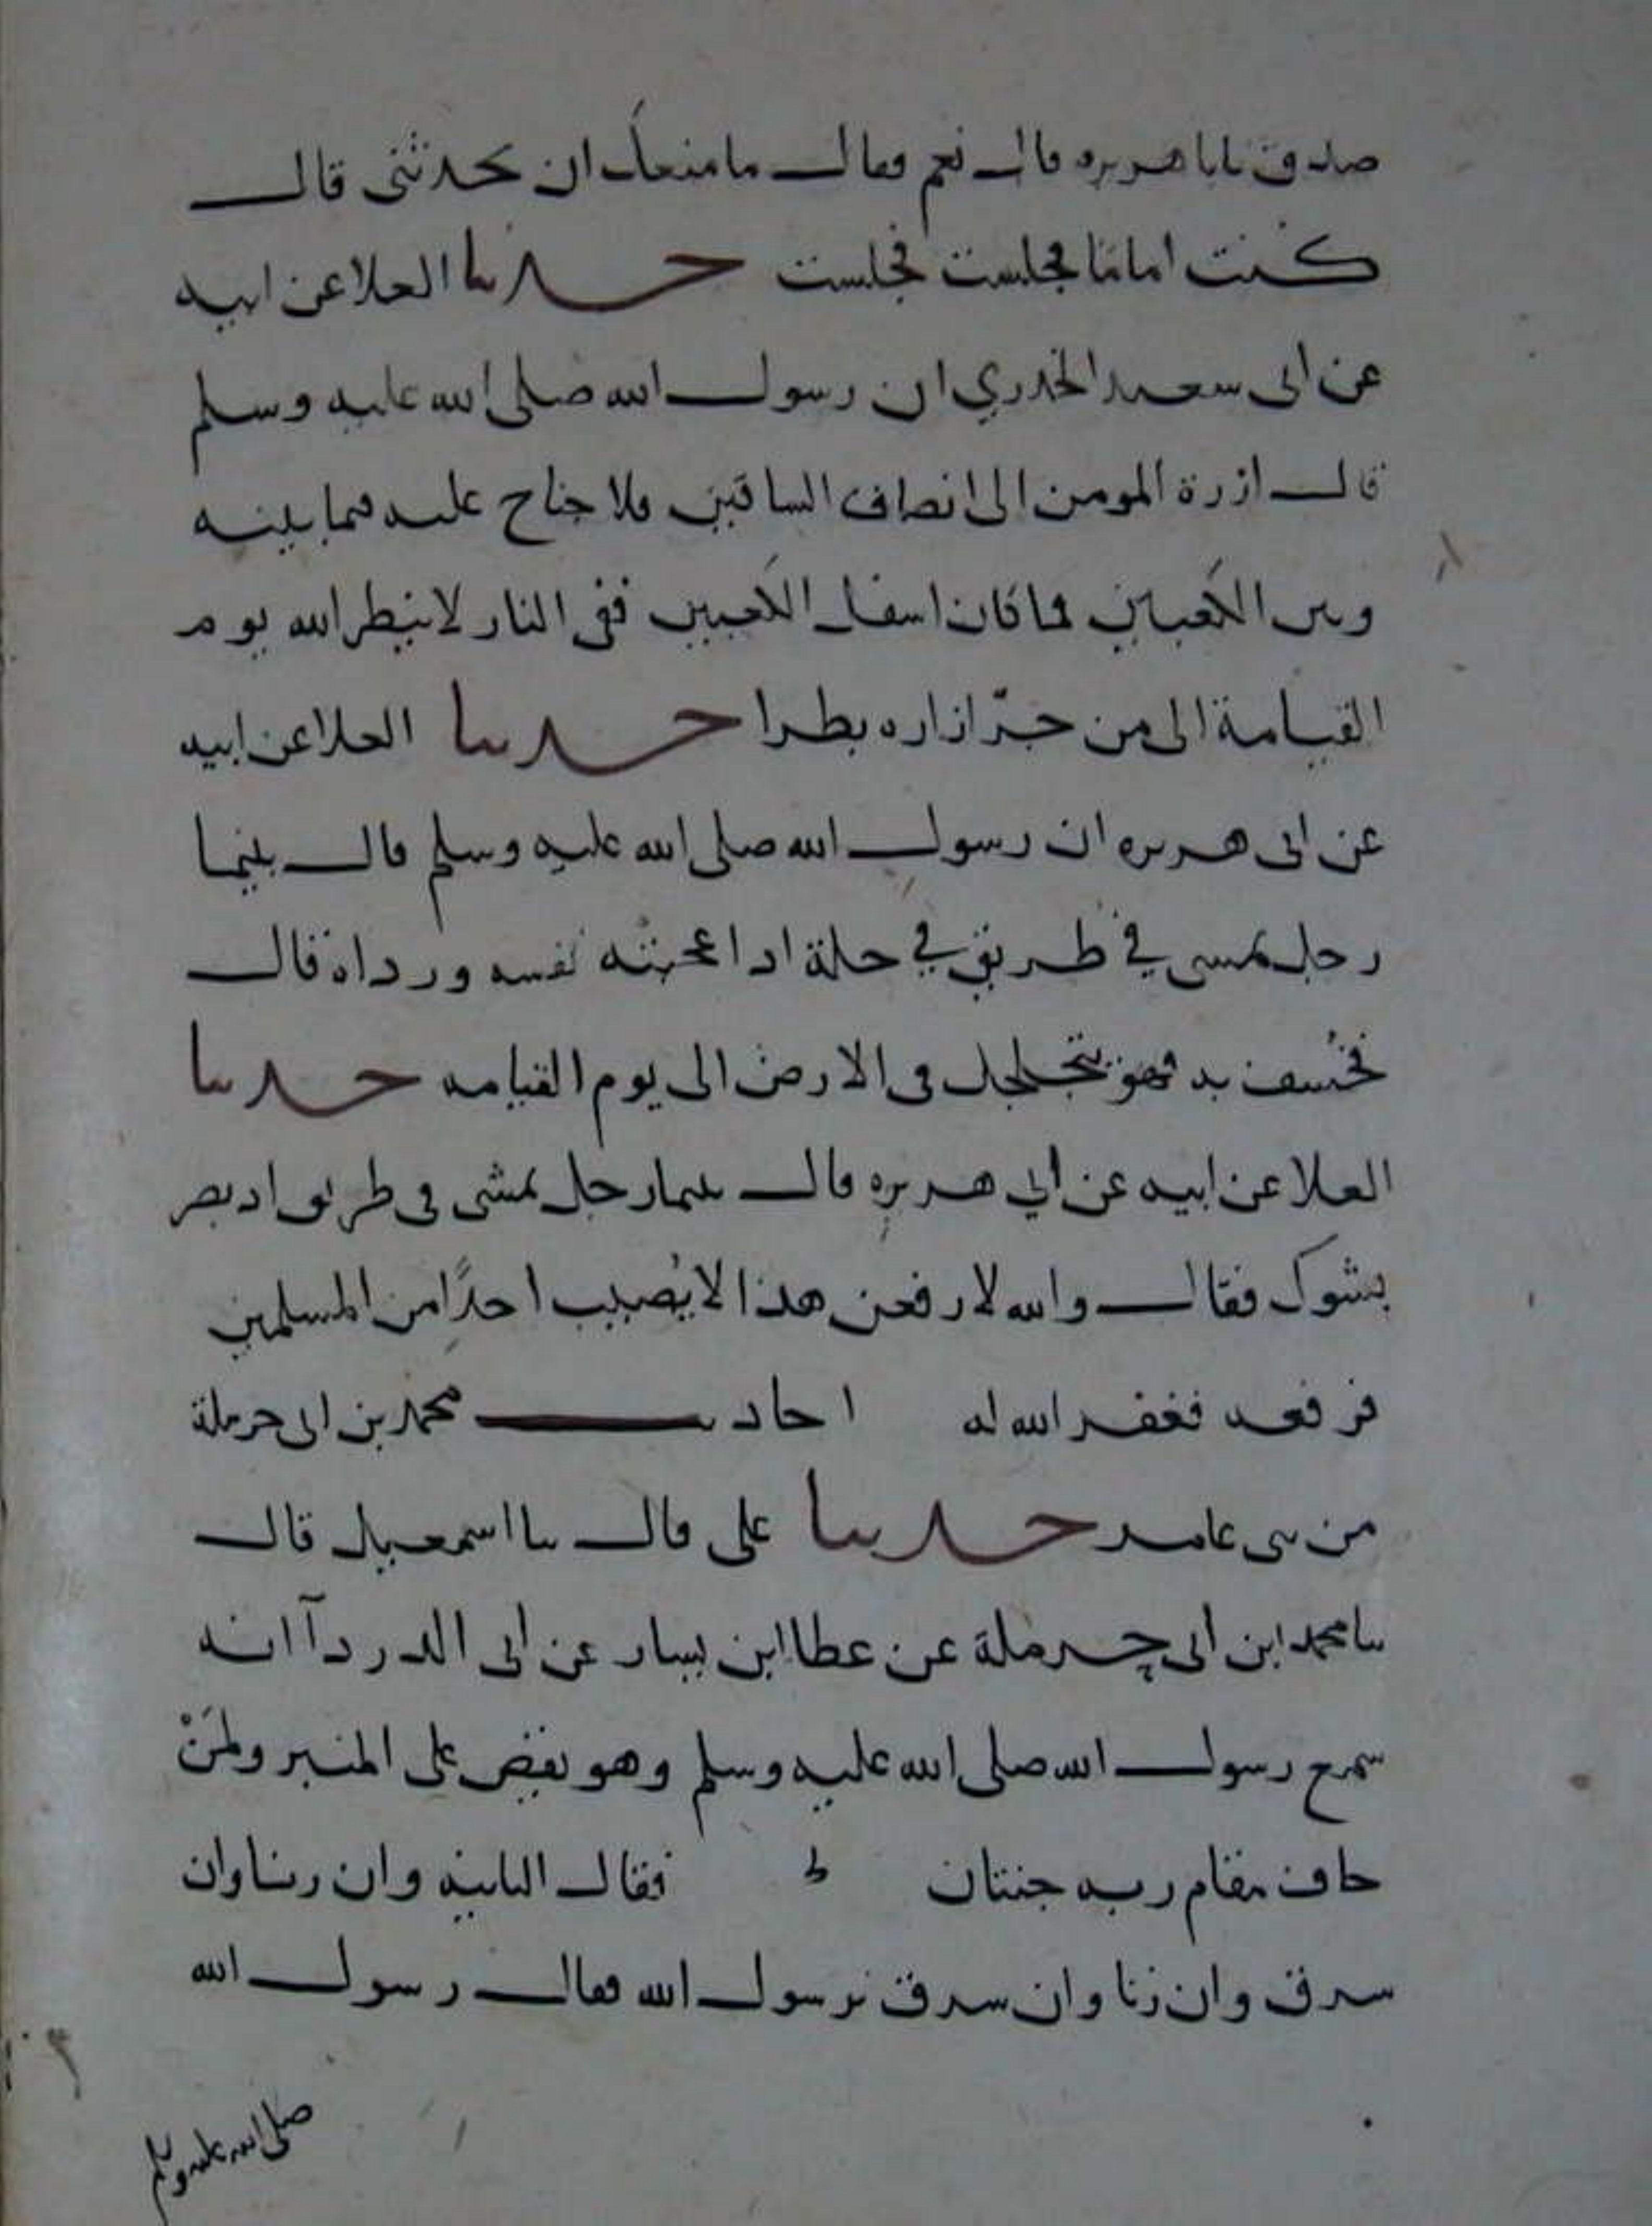 صدق يابا هريره قال نعم فقال ما منعك ان تحدثنى قال
كنت امامنا فجلست فجلست حدثنا العلا عن ابيه
عن ابى سعيد الخدري ان رسول الله صلى الله عليه وسلم
قال ازرة المومن الى انصاف الساقين فلا جناح عليه فيما بينه
وبين الكعبين فما كان اسفل الكعبين ففى النار لا ينظر الله يوم
القيامة الى من جرّ ازاره بطرا حدثنا العلا عن ابيه
عن ابى هريره ان رسول الله صلى الله عليه وسلم قال بينما
رجل يمسى في طريق في حلة اذا عجبته نفسه ورداه قال
فخُسف به فهو يتجلجل فى الارض الى يوم القيامه حدثنا
العلا عن ابيه عن ابي هريره قال بينما رجل يمشى فى طريق اذ بصر
بشوك فقال والله لارفعن هذا لا يُصيب احدًا من المسلمين
فرفعه فغفر الله له احاديث محمد بن ابى حرملة
من بنى عامر حدثنا على قال ثنا اسمعيل قال
ثنا محمد ابن ابى حرملة عن عطا ابن يسار عن ابى الدردآ انه
سمع رسول الله صلى الله عليه وسلم وهو يقص على المنبر ولمَنْ
خاف مقام ربه جنتان فقال الثانيه وان زنا وان
سرق وان زنا وان سرق يرسول الله فقال رسول الله
صلى الله عليه وسلم